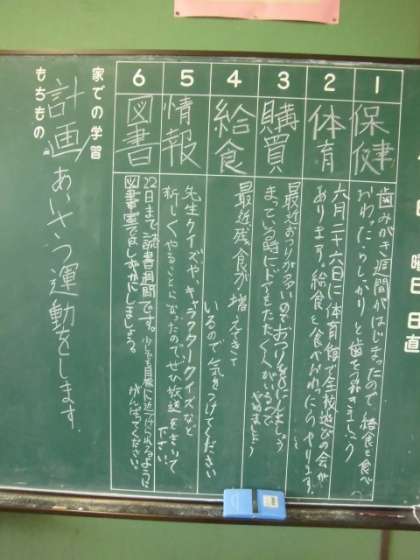 曜日
日直
1
保健
歯みがき週間がはじまったので給食を食べ
おわったらしっかりと歯をみがきましょう
2
体育
六月二十六日に体育館で全校遊びの会が
あります。給食を食べおわったらやります。
3
購買
最近おつりが多いのでおつり
まっている時にドアをたたく人がいるので
やめましょう
4
給食
最近残食が増えてきて
いるので気をつけてください
5
情報
先生クイズや、キャラクタークイズなど
新しくやることになったので、ぜひ放送をきいて
下さい。
6
図書
22日まで読書週間です。少しでも目標に近づけられるように
がんばってください。
図書室ではしずかにしましょう。
家での学習
もちもの
計画 あいさつ運動をします。